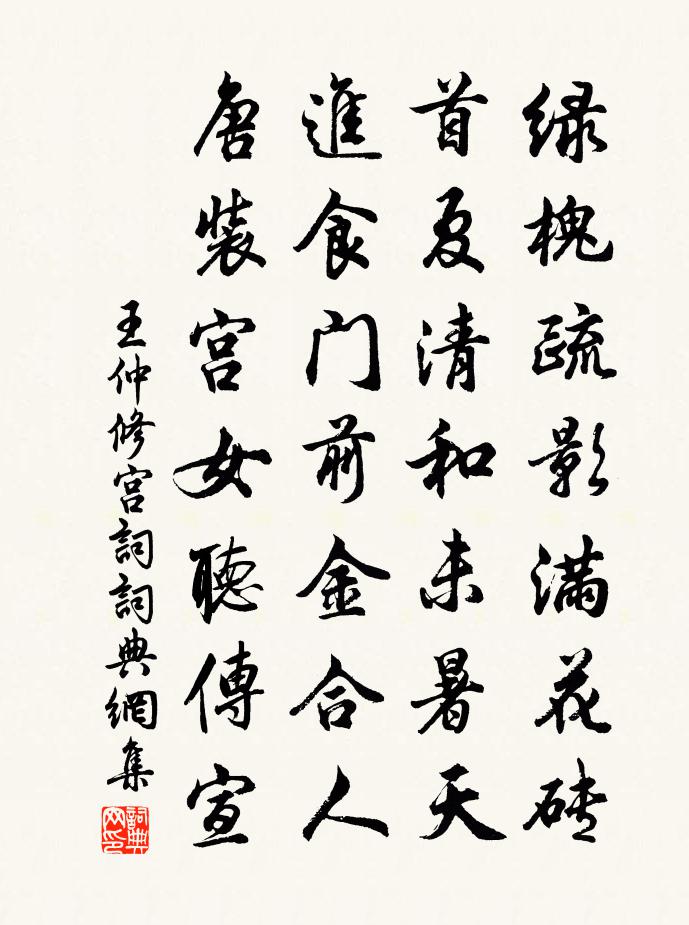 绿槐疏影满花砖
首夏清和未暑天
進食门前金合人
唐装宫女聽傳宣
王仲修宫詞詞典網集
詞典网印